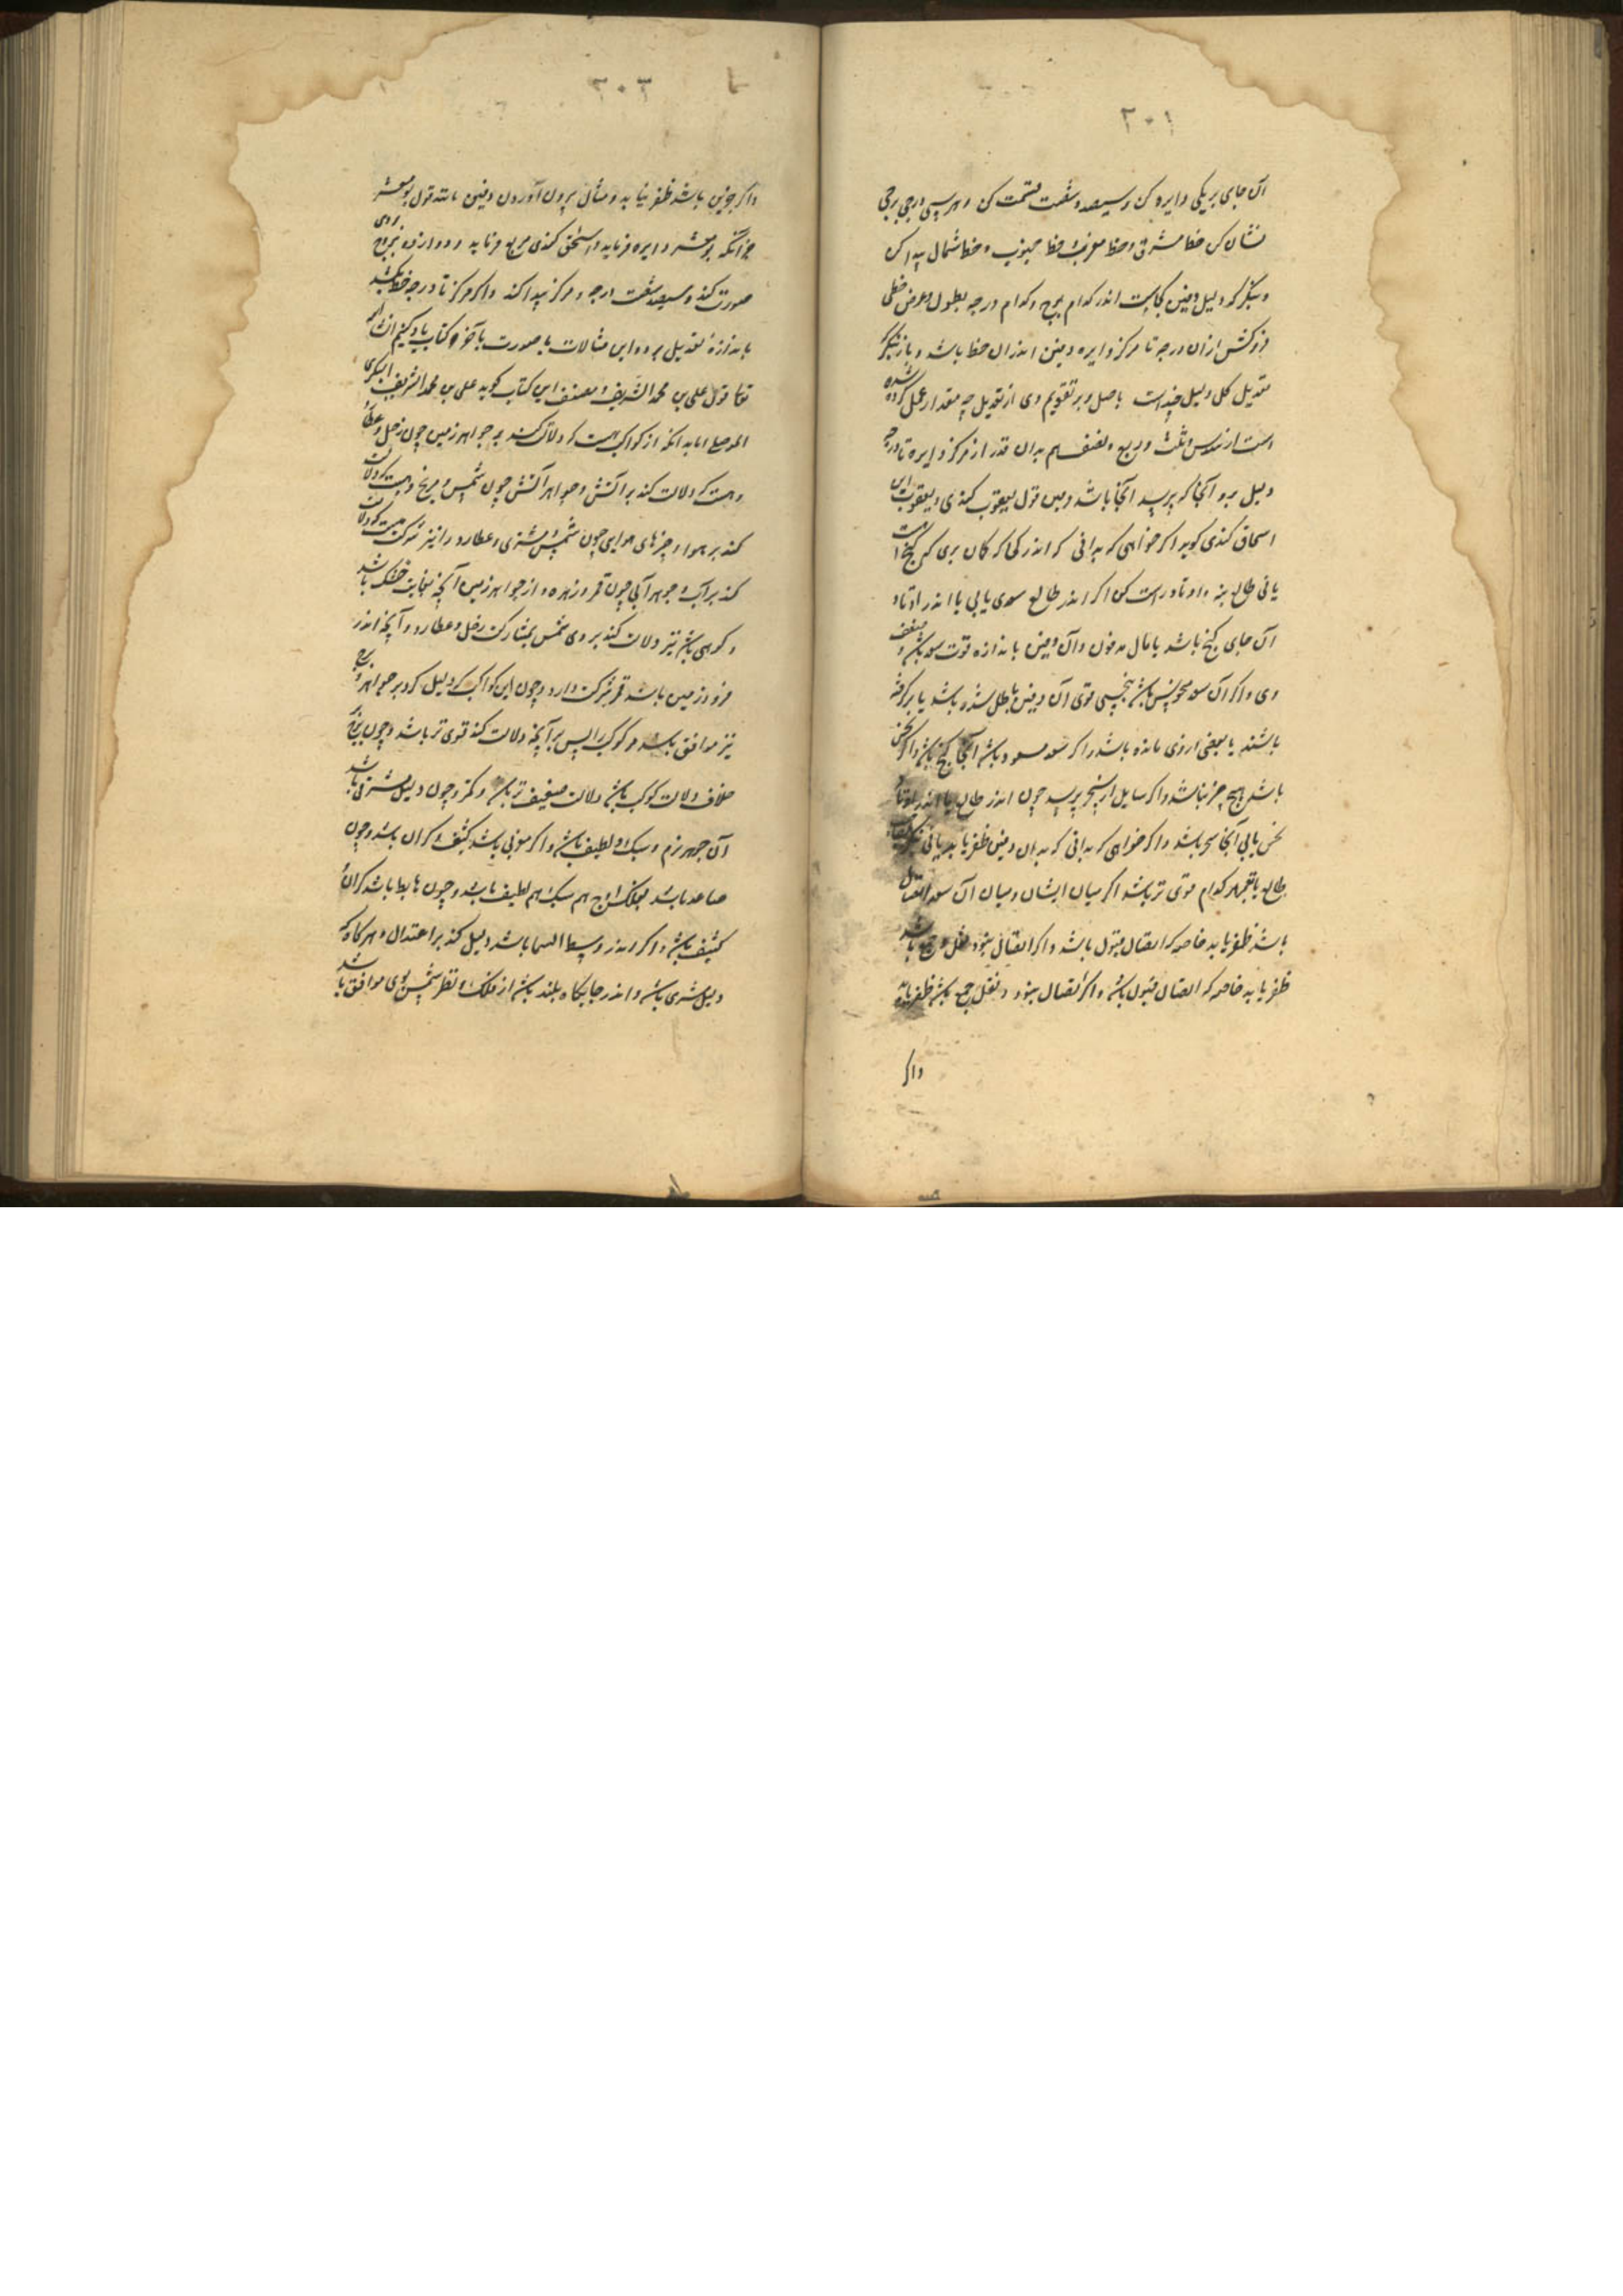 ۲۰۱
آن جای بریکی دایره کن و سیصد و شصت قسمت کن و هر سی درجی برجی
نشان کن خط مشرق و خط مغرب و خط جنوب و خط شمال پیدا کن
و بنگر که دلیل دفین کجاست اندر کدام برج و کدام درجه بطول و عرض خطی
فرو کش از ان درجه تا مرکز دایره دفین اندران خط باشد و باز بنگر
تعدیل کل دلیل چند است باصل و بر تقویم وی از تعدیل چه مقدار عمل کرده شده
است از سدس و ثلث و ربع و نصف هم بدان قدر از مرکز دایره تا درجه
دلیل برو آنجا که برسد آنجا باشد و بین قول یعقوب کندی و یعقوب ابن
اسحاق کندی کوید اکر خواهی که بدانی که اندر کی که کان بری کی کنج است
یا نی طالع بنه و اوتاد راست کن اکر اندر طالع سعدی یابی یا اندر اوتاد
آن جای کنج باشد یا مال مدفون و آن دفین باندازه قوت سعد باشد و ضعف
وی و اکر آن سعد منحوس باشد بنحسی قوی آن دفین باطل شده باشد یا برکرفته
باشند یا بعضی از وی مانده باشد و اکر سعد مسعود باشد آنجا کنج باشد و اکر نحس
باشد هیچ چیز نباشد و اکر سایل از سحر پرسد چون اندر طالع یا اندر اوتاد
نحس یابی آنجا سحر باشد و اکر خواهی که بدانی که بدان دفین ظفر یابد یا نی بنکر
طالع یا قمر هر کدام قوی تر باشد اکر میان ایشان و میان آن سعد اتصال
باشد ظفر یابد خاصه که اتصال قبول باشد و اکر اتصال نبود نقل و جمع باشد
ظفر یابد خاصه که اتصال قبول باشد و اکر اتصال نبود و نقل جمع باشد ظفر یابد
واکر
۲۰۲
واکر جزین باشد ظفر نیابد و مثال بیرون آوردن دفین قول بومعشر
چنانکه بومعشر دایره فرماید و اسحق کندی مربع فرماید و دوازده بروج بر وی
صورت کند و سیصد شصت درجه و مرکز پیدا کند و اکر مرکز تا درجه خط بکشد
باندازه تعدیل برود این مثالات با صورت بآخر کتاب یاد کنیم ان شاالله
تعا قول علی بن محمد الشریف مصنف این کتاب کوید علی بن محمد الشریف البکری
اما بدانکه از کواکب هست که دلالت کند بر جواهر زمین چون زحل و عطارد
و هست که دلالت کند بر آتش و جواهر آتش چون شمس و مریخ و هست که دلالت
کند بر هوا و چیزهای هوایی چون شمس و مشتری و عطارد را نیز شرکت هست که دلالت
کند بر آب و جوهر آبی چون قمر و زهره و از جواهر زمین آنچه بغایت خشک باشد
و کوهی باشد نیز دلالت کند بر وی شمس بمشارکت زحل و عطارد و آنچه اندر
فرود زمین باشد قمر شرکت دارد و چون این کواکب که دلیل کرد بر جواهر و برج
نیز موافق باشد هر کوکب را پس بر آنچه دلالت کند قوی تر باشد و چون برج
خلاف دلالت کوکب باشد دلالت ضعیف تر باشد و کمتر و چون دلیل مشرقی باشد
آن جوهر نرم و سبک و لطیف باشد و اکر مغربی باشد کثیف و کران باشد و چون
صاعد باشد بفلک اوج هم سبک هم لطیف باشد و چون هابط باشد کران
کثیف باشد و اکر اندر وسط السما باشد دلیل کند بر اعتدال و هر کاه که
دلیل مشتری باشد و اندر جایکاه بلند باشد از فلک و نظر شمس بوی موافق باشد